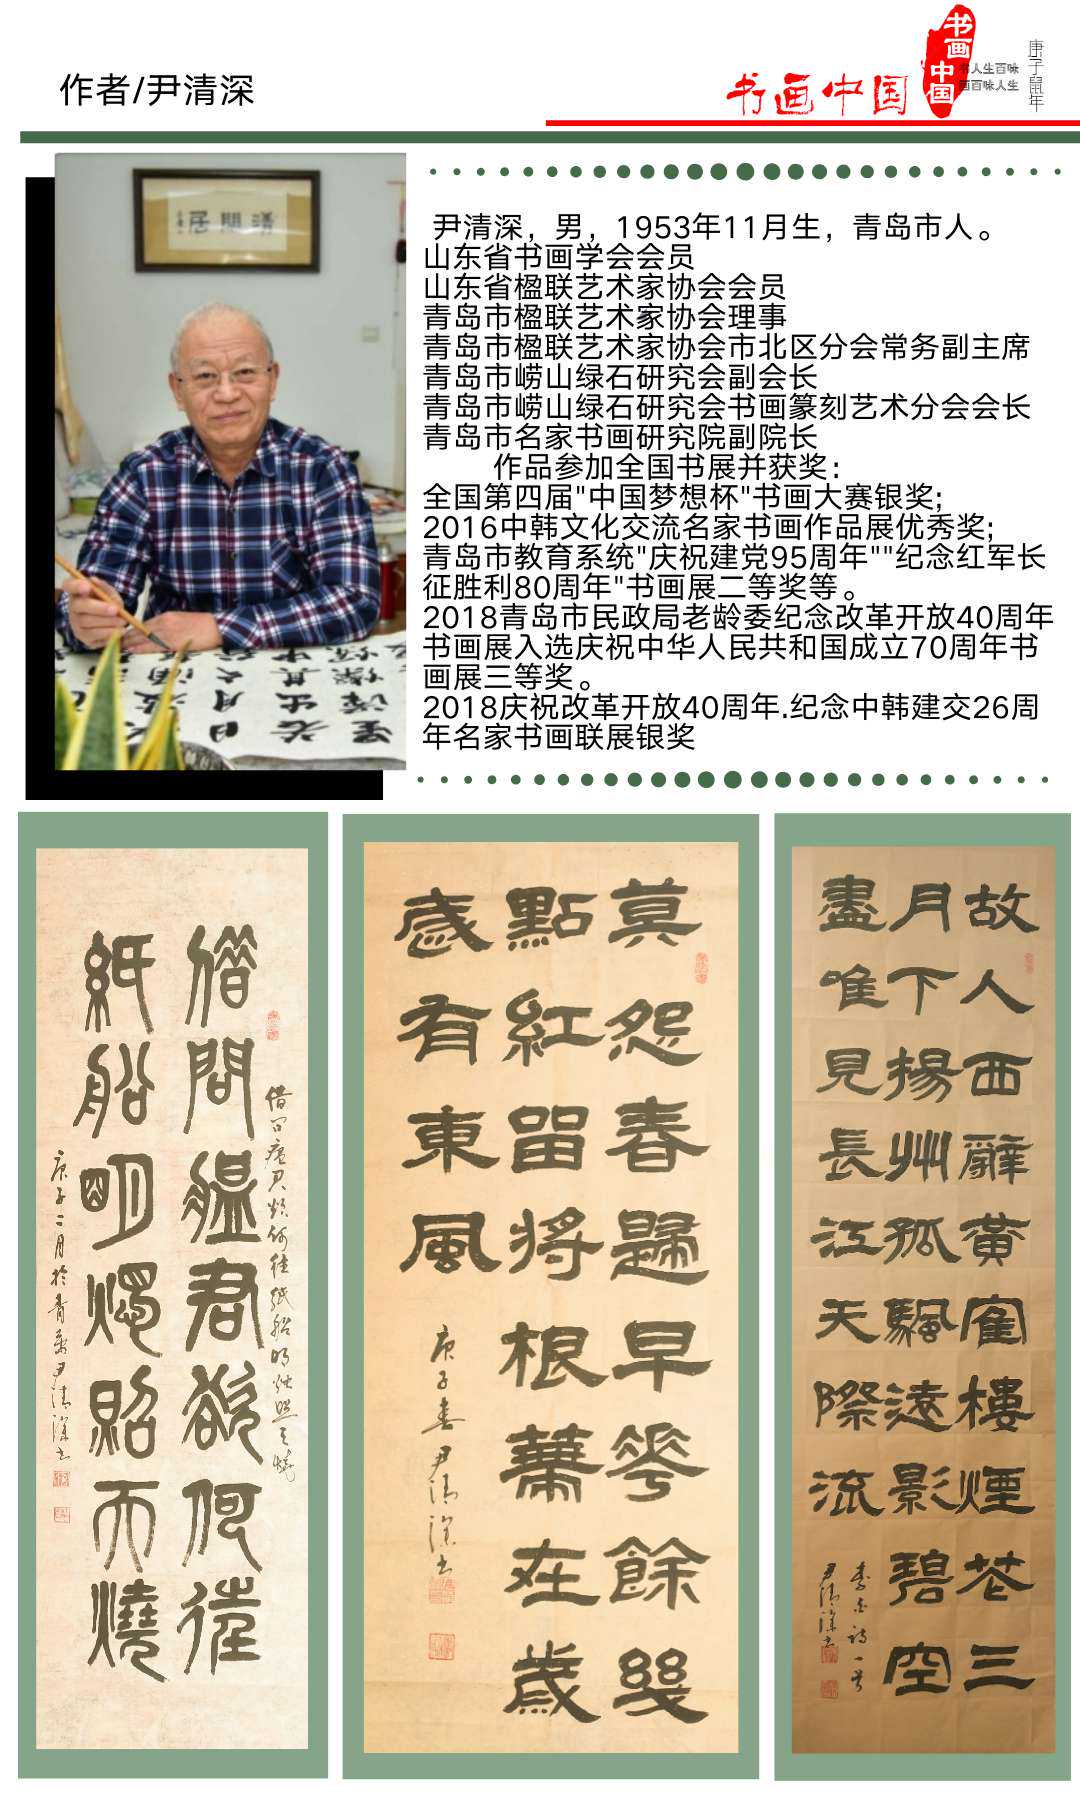 作者/尹清深
书画中国
书画
中国
书人生百味
画百味人生
庚子鼠年
尹清深，男，1953年11月生，青岛市人。
山东省书画学会会员
山东省楹联艺术家协会会员
青岛市楹联艺术家协会理事
青岛市楹联艺术家协会市北区分会常务副主席
青岛市崂山绿石研究会副会长
青岛市崂山绿石研究会书画篆刻艺术分会会长
青岛市名家书画研究院副院长
作品参加全国书展并获奖：
全国第四届"中国梦想杯"书画大赛银奖；
2016中韩文化交流名家书画作品展优秀奖；
青岛市教育系统"庆祝建党95周年""纪念红军长
征胜利80周年"书画展二等奖等。
2018青岛市民政局老龄委纪念改革开放40周年
书画展入选庆祝中华人民共和国成立70周年书
画展三等奖。
2018庆祝改革开放40周年.纪念中韩建交26周
年名家书画联展银奖
借问瘟君欲何往
纸船明烛照天烧
庚子二月於青岛尹清深书
莫怨春歸早花餘幾
點紅留將根蒂在歲
歲有東風
庚子春尹清深书
故人西辭黃鶴樓煙花三
月下揚州孤颿遠影碧空
盡唯見長江天際流
李白诗一首
尹清深书